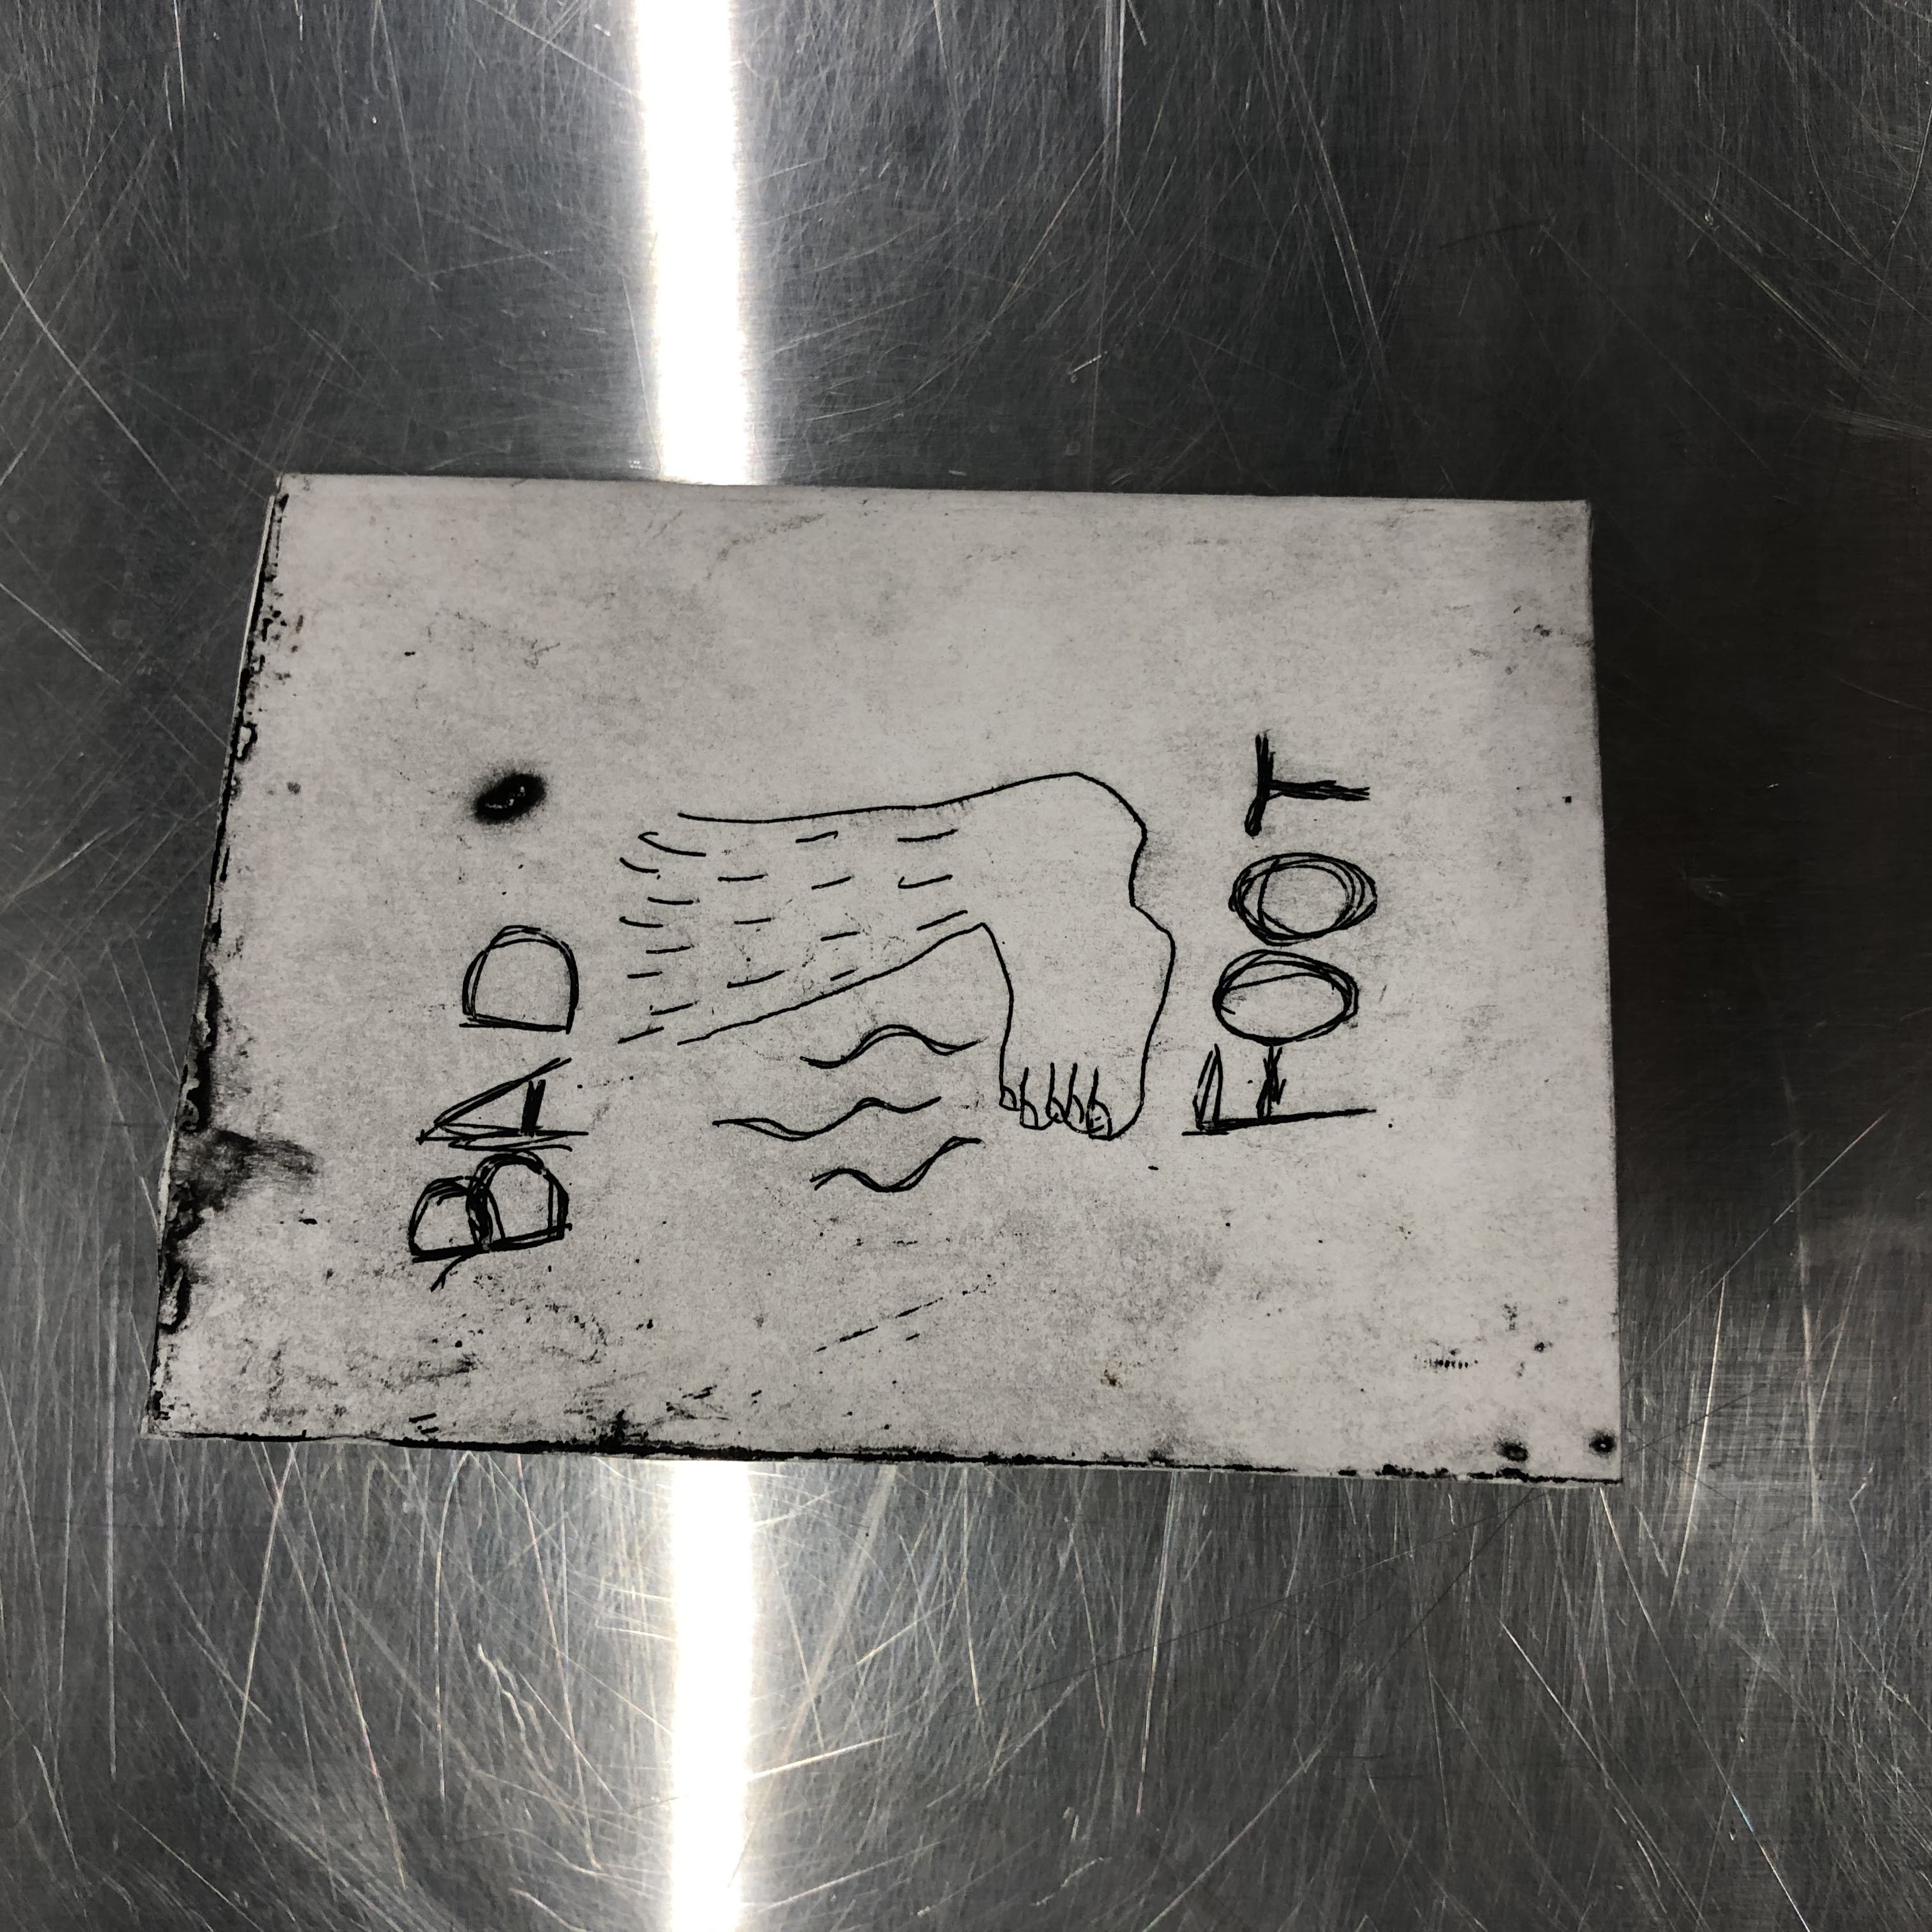 BAD
FOOT